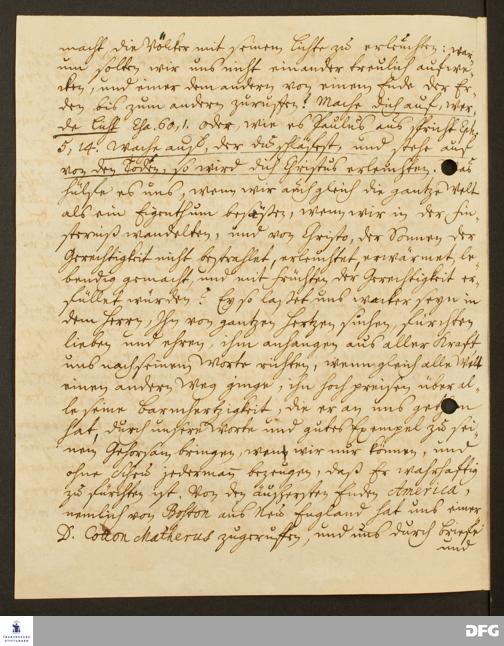 macht, die Völcker mit seinem Lichte zu erleuchten: war
um solten wir uns nicht einander treulich aufwe-
cken, und einer dem andern von einem Ende der Er-
den bis zum andern zuruffen: Mache dich auf, wer-
de licht Esa. 60, 1. oder, wie es Paulus aus spricht Eph.
5, 14. Wache auf, der du schläfest, und stehe auf
von den Todten, so wird dich Christus erleuchten. Was
hülfe es uns, wenn wir auch gleich die gantze Welt
als ein Eigenthum besässen, wenn wir in der Fin-
sterniß wandelten, und von Christo, der Sonnen der
Gerechtigkeit nicht bestrahlet, erleuchtet, erwärmet, le-
bendig gemacht, und mit Früchten der Gerechtigkeit er-
füllet würden? Ey so lasset uns wacker seyn in
dem Herrn, Ihn von gantzem Hertzen suchen, fürchten
lieben und ehren, ihm anhangen aus aller Krafft
uns nach seinem Worte richten, wenn gleich alle Welt
einen andern Weg ginge, ihn hoch preisen über al-
le seine Barmhertzigkeit, die er an uns gethan
hat, durch unsere Worte und gutes Exempel zu sei-
nem Gehorsam bringen, wen wir nur können, und
ohne Scheu jederman bezeugen, daß Er wahrhaftig
zu fürchten ist. Von den äussersten Enden America,
nemlich von Boston aus Neu England hat uns einer
D. Cotton Matherus zugeruffen, und uns durch Briefe
und
FRANCKESCHE STIFTUNGEN
DFG